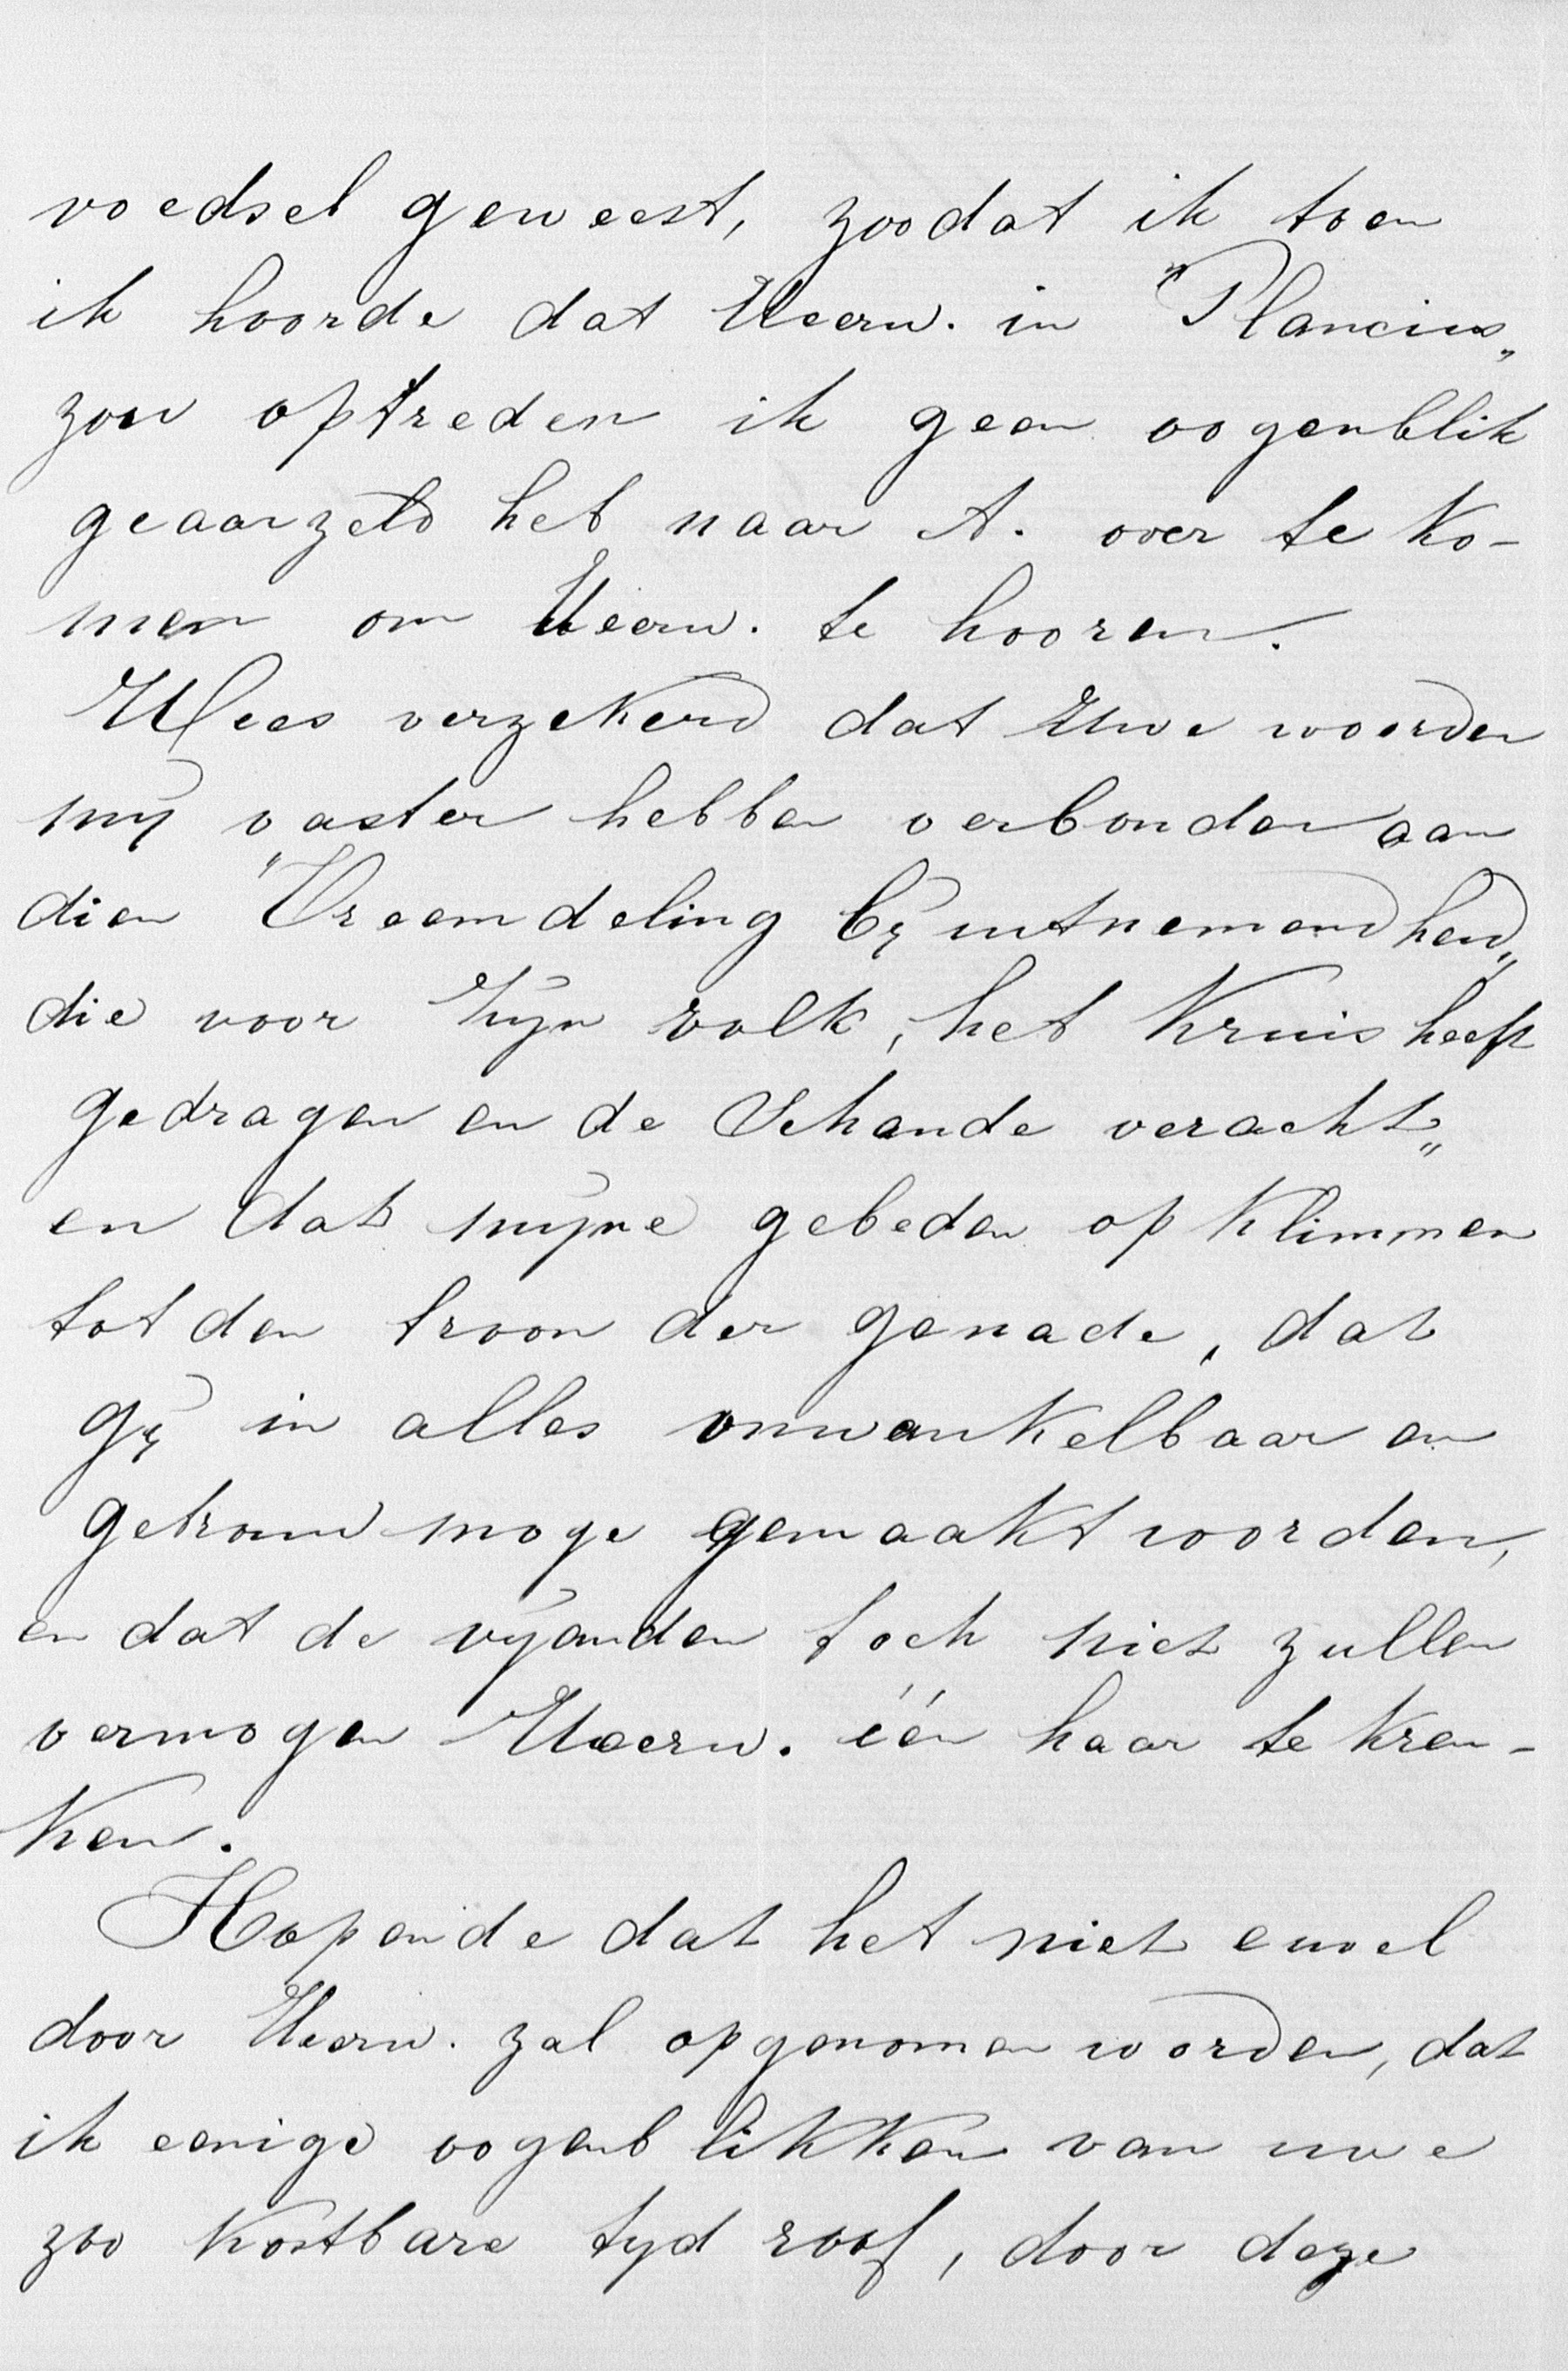 voedsel geweest, zoodat ik toen
ik hoorde dat UEerw. in "Plancius„
zou optreden ik geen oogenblik
geaarzeld heb naar A. over te ko-
men om UEerw. te hooren.
Wees verzekerd dat Uwe woorden
mij vaster hebben verbonden aan
dien "Vreemdeling bij uitnemendheid„
die voor Zijn volk, het Kruis heeft
gedragen en de Schande veracht„
en dat mijne gebeden op klimmen
tot den troon der genade, dat
gij in alles onwankelbaar en
getrouw moge gemaakt worden,
en dat de vijanden toch niet zullen
vermogen UEerw. één haar te kren-
ken.
Hopende dat het niet euvel
door UEerw. zal opgenomen worden, dat
ik eenige oogenblikken van uwe
zoo kostbare tyd roof, door deze